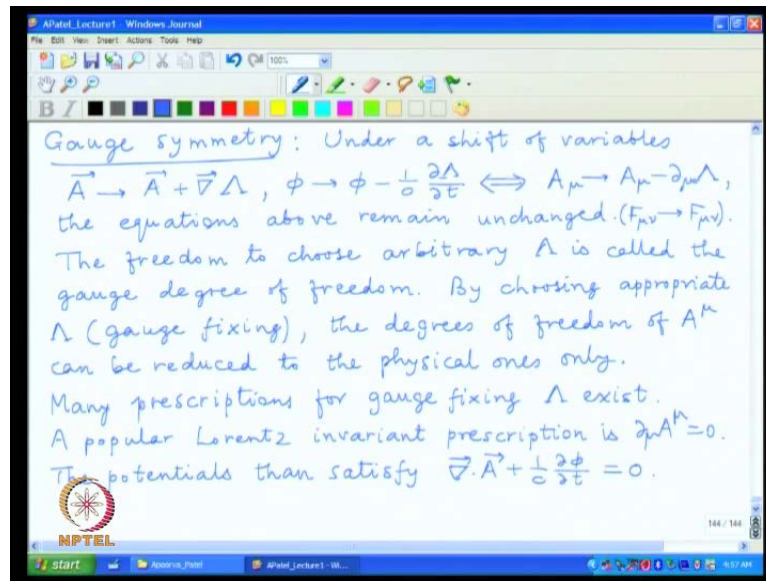 APatel_Lecture1 - Windows Journal
File Edit View Insert Actions Tools Help
100%
B I
Gauge symmetry: Under a shift of variables
A⃗ → A⃗ + ∇⃗Λ, φ → φ - 1/c ∂Λ/∂t ⟺ Aμ → Aμ - ∂μΛ,
the equations above remain unchanged. (Fμν → Fμν).
The freedom to choose arbitrary Λ is called the
gauge degree of freedom. By choosing appropriate
Λ (gauge fixing), the degrees of freedom of A^μ
can be reduced to the physical ones only.
Many prescriptions for gauge fixing Λ exist.
A popular Lorentz invariant prescription is ∂μA^μ = 0.
The potentials than satisfy ∇⃗.A⃗ + 1/c ∂φ/∂t = 0.
NPTEL
144 / 144
start Apoorva_Patel APatel_Lecture1 - Wi... 4:57 AM